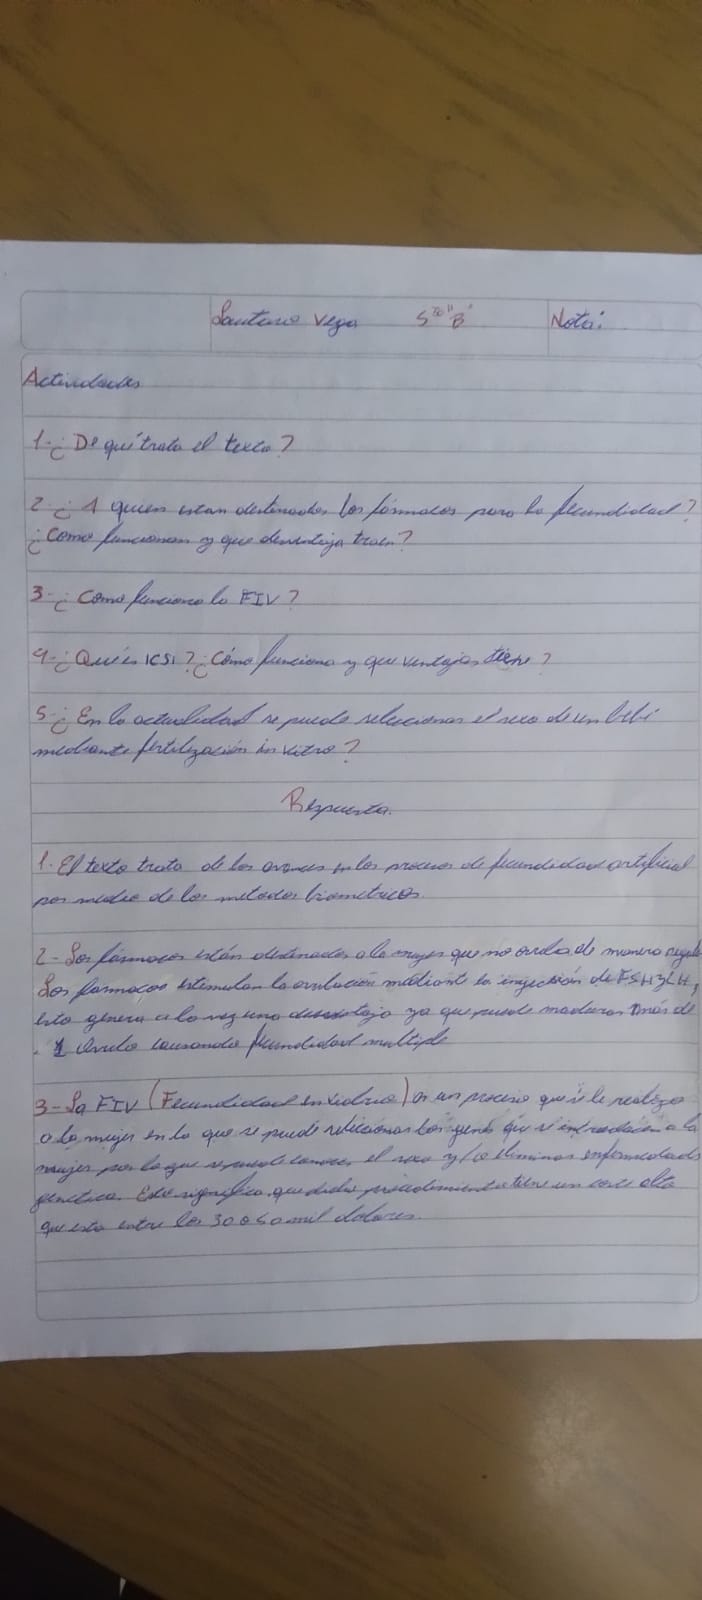 Santano Vega 5to "B" Nota:
Actividades
1-¿De qué trata el texto?
2-¿A quien estan destinados los fármacos para la fecundidad?
¿Como funcionan y que desventaja traen?
3-¿Como funciona la FIV?
4-¿Qué es ICSI? ¿Cómo funciona y que ventajas tiene?
5-¿En la actualidad se puede seleccionar el sexo de un bebé
mediante fertilización in vitro?
Respuesta.
1. El texto trata de los avances en los procesos de fecundidad artificial
por medio de los metodos biometricos.
2- Los fármacos están destinados a la mujer que no ovula de manera regular
Los farmacos estimulan la ovulación mediante la inyección de FSH y LH,
esto genera a la vez una desventaja ya que puede madurar más de
1 óvulo causando fecundidad multiple
3- La FIV (Fecundidad in vidrio) es un proceso que se le realiza
a la mujer en lo que se puede seleccionar los genes que se introducen a la
mujer por lo que se puede conocer el sexo y/o eliminar enfermedades
genetica. Esto significa que dicho procedimiento tiene un costo alto
que esta entre los 30 o 40 mil dolares.